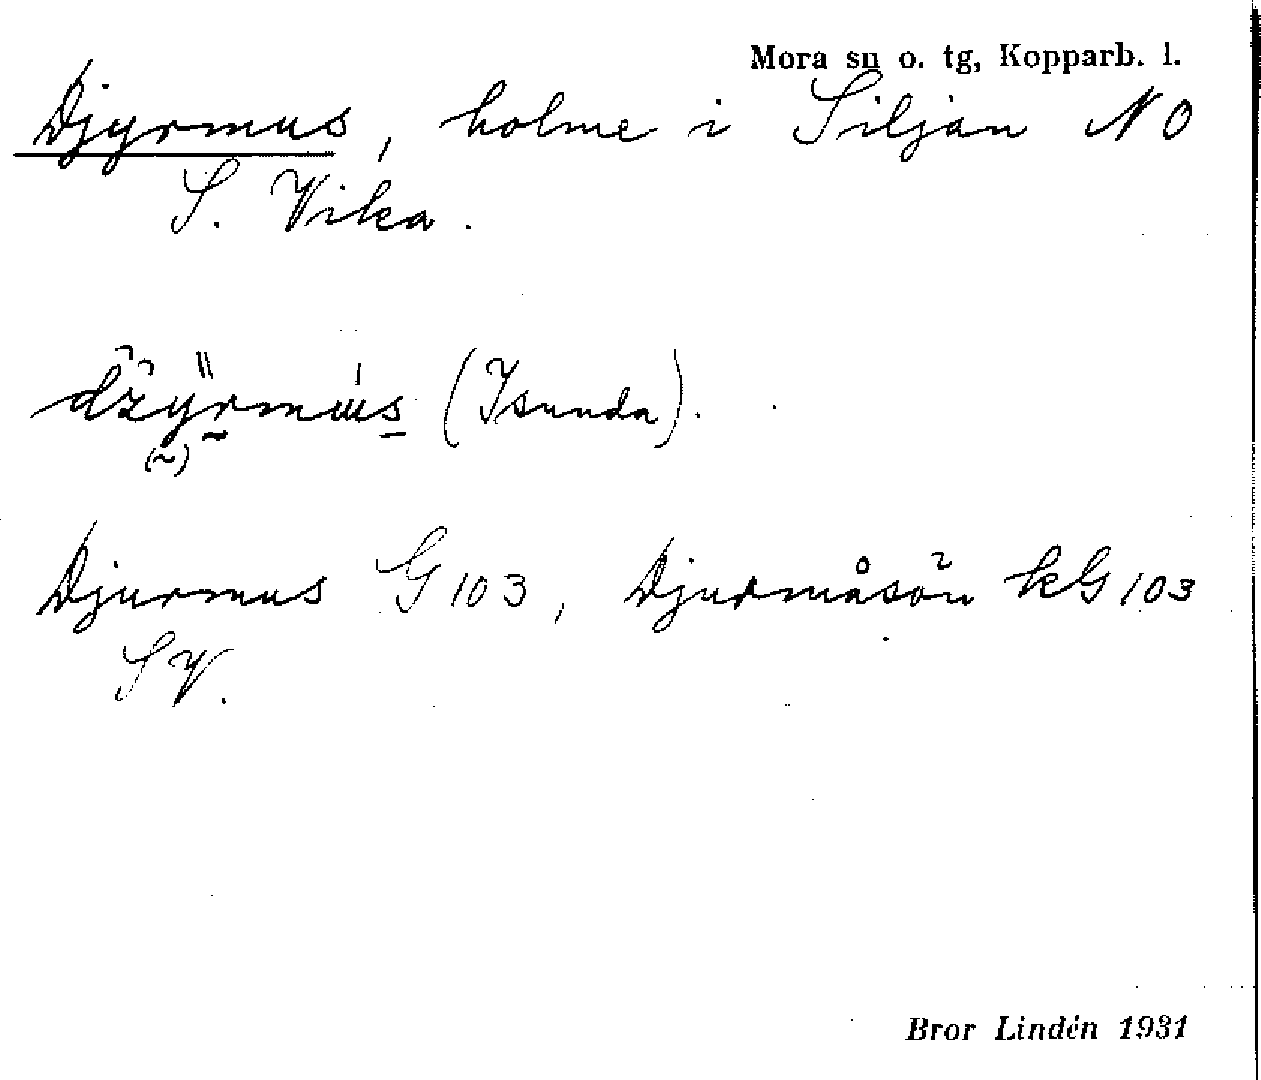 Mora sn o. tg, Kopparb. l.
Djyrmus, holme i Siljan NO
S. Vika.
(Isunda).
Djurmus G 103, Djurmåsön kG 103
SV.
Bror Lindén 1931